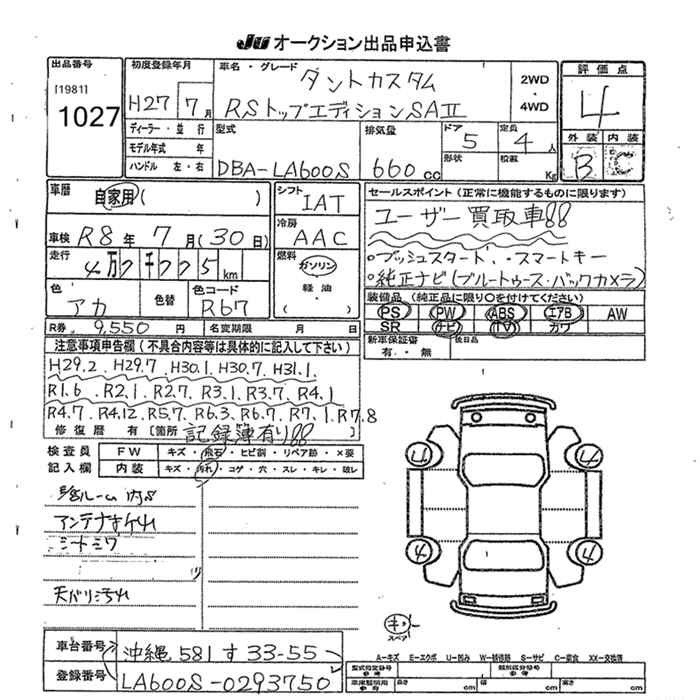 JU オークション出品申込書
出品番号
[1981]
1027
初度登録年月
H27 7月
ディーラー・並行
モデル年式 年
ハンドル 左・右
車名・グレード
タントカスタム
RSトップエディションSAⅡ
2WD
・
4WD
型式
DBA-LA600S
排気量
660 cc
ドア
5
形状
定員
4 人
積載
Kg
評価点
4
外装 内装
B C
車歴
自家用( )
車検 R8年 7月(30日)
走行
4万7千775 km
色
アカ
色替
色コード
R67
R券 9,550 円
名変期限 月 日
シフト
IAT
冷房
AAC
燃料
ガソリン
軽油
( )
セールスポイント(正常に機能するものに限ります)
ユーザー買取車!!
・プッシュスタート、・スマートキー
・純正ナビ(ブルートゥース・バックカメラ)
装備品(純正品に限り○を付けてください)
PS PW ABS エアB AW
SR ナビ TV カワ
新車保証書
有・無
後日品
注意事項申告欄(不具合内容等は具体的に記入して下さい)
H29.2、H29.7、H30.1、H30.7、H31.1
R1.6、R2.1、R2.7、R3.1、R3.7、R4.1
R4.7、R4.12、R5.7、R6.3、R6.7、R7.1、R7.8
修復歴 有〔箇所 記録簿有り!! 〕
検査員
記入欄
FW キズ・飛石・ヒビ割・リペア跡・×要
内装 キズ・汚れ・コゲ・穴・スレ・キレ・破レ
アンテナ
シートシワ
天バリ汚れ
4
4
4
4
キ
スペア
車台番号
登録番号
沖縄 581 す 33-55
LA600S-0293750
A－キズ E－エクボ U－凹み W－補修跡 S－サビ C－腐食 XX－交換済
型式指定番号
参考
類別区分番号
参考
車庫証明用
参考
長さ cm
幅 cm
高さ cm